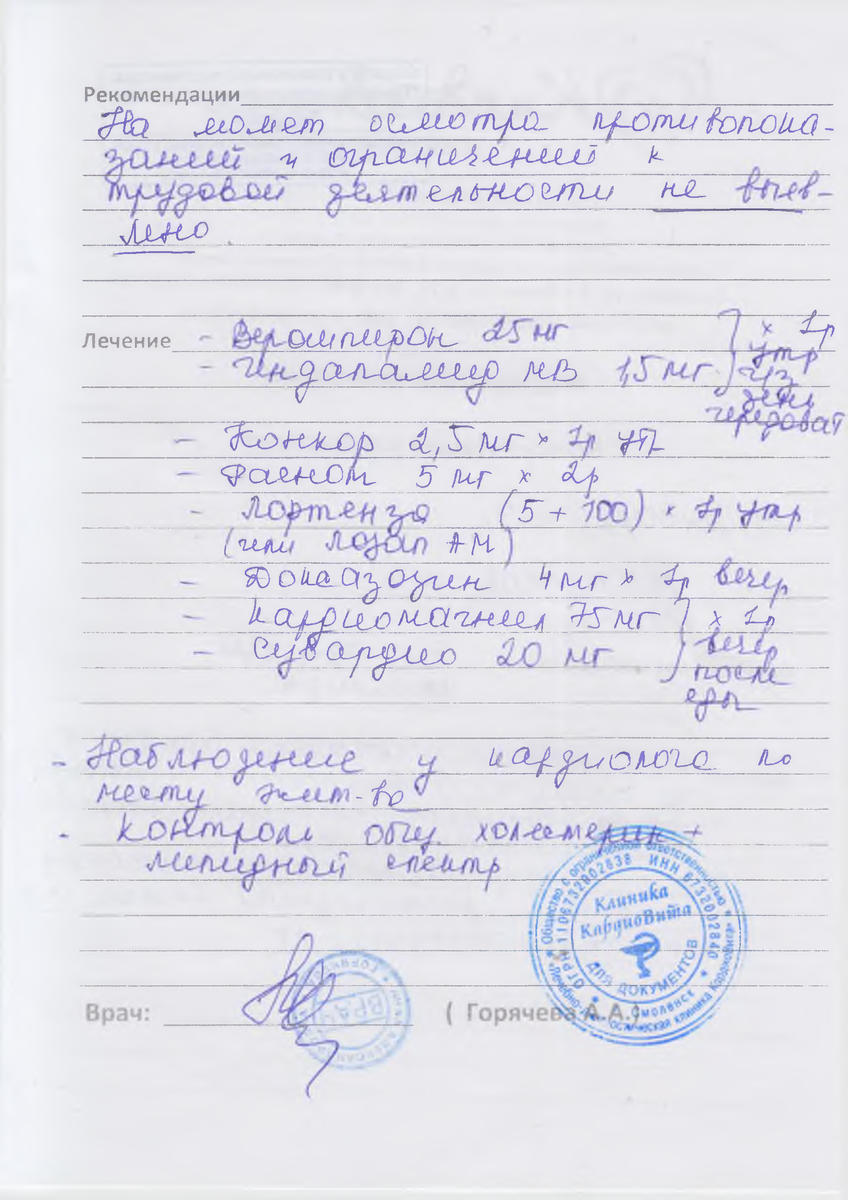 Рекомендации
На момет осмотра противопока-
заний и ограничений к
трудовой деятельности не выев-
лено.
Лечение - Верошпирон 25 мг } х 1р
- Индапамид МВ 1,5 мг утр
ч/з
день
чередоват
- Конкор 2,5 мг х 1р утр
- Физиотенз 5 мг х 2р
- Лортенза (5 + 100) х 1р утр
(или Лозап АМ)
- Доксазозин 4 мг х 1р вечер
- Кардиомагнил 75 мг } х 1р
- Сувардио 20 мг вечер
после
еды
- Наблюдение у кардиолога по
месту жит-ва
- Контроль общ. холестерин +
липидный спектр
Врач: ( Горячева А.А.)
ВРАЧ
Общество с ограниченной ответственностью
ОГРН 1106732002838 ИНН 6732002840
Клиника
КардиоВита
ДЛЯ ДОКУМЕНТОВ
Смоленск